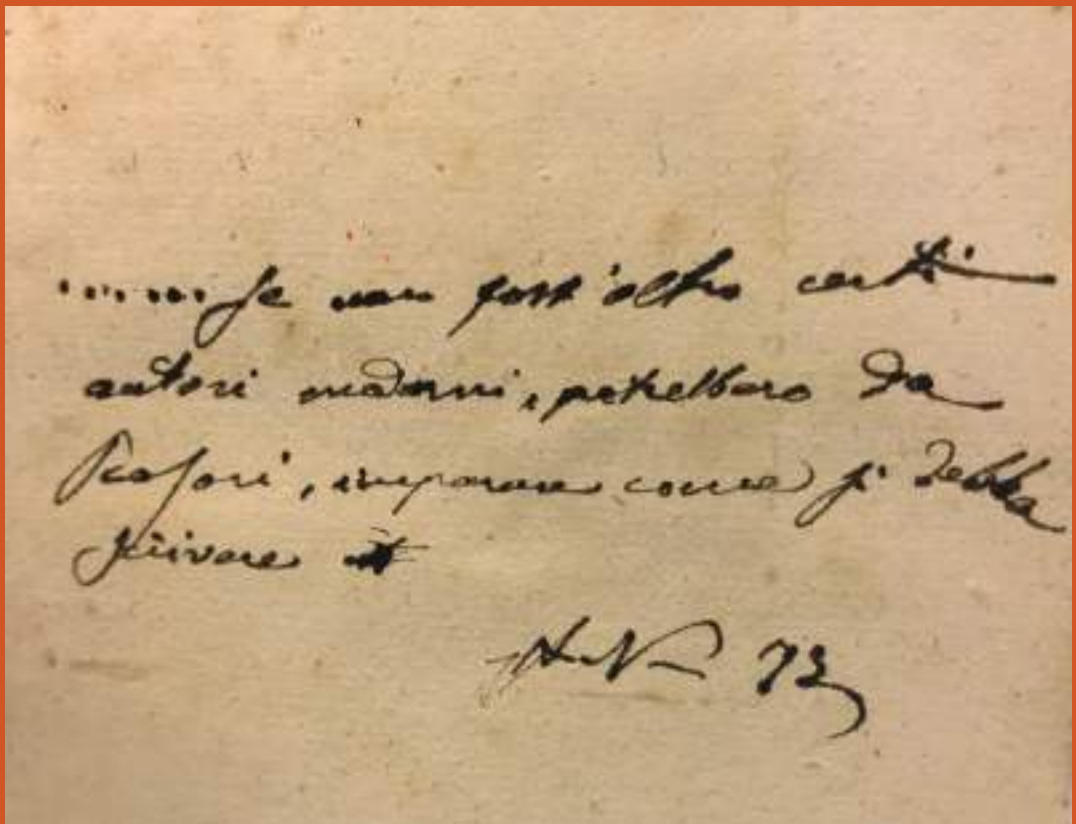 ...... Se non foss'altro certi
autori moderni, potrebbero da
Rasori, imparare come si debba
scrivere
73